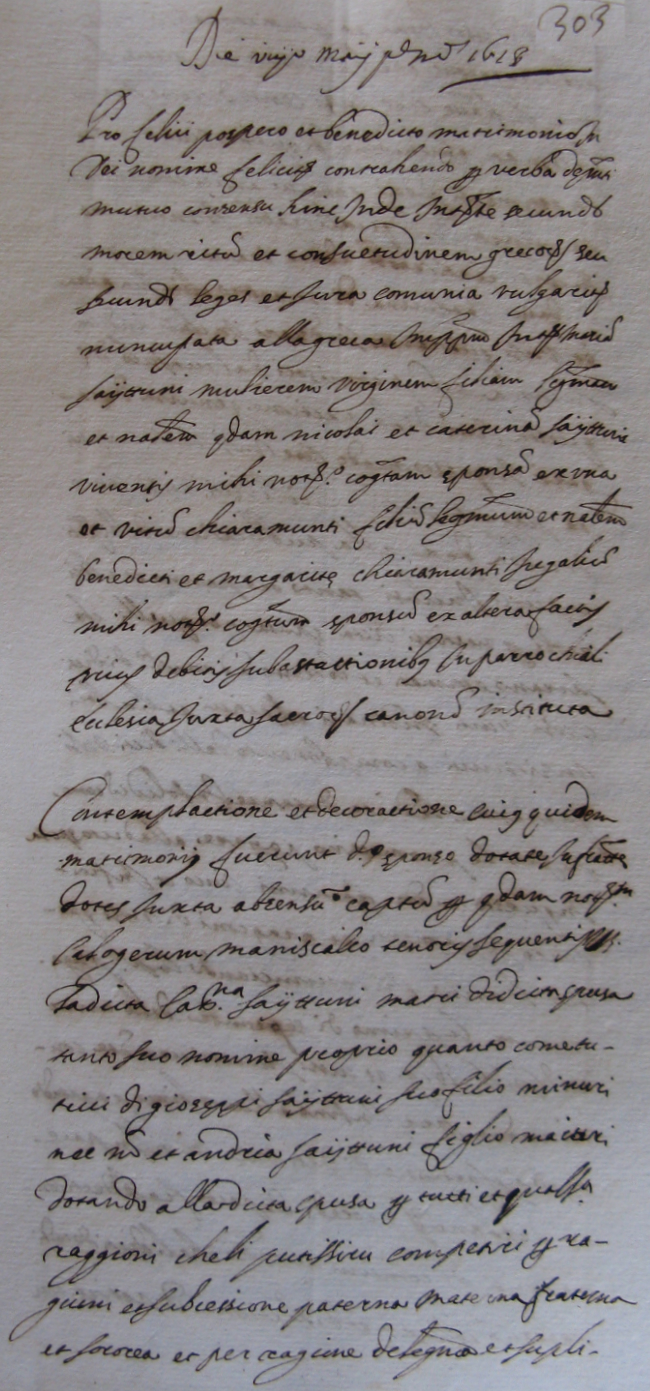 303
Die viij maij p. ind. 1618
Pro felici prospero et benedicto matrimonio in
Dei nomine feliciter contrahendo per verba de
mutuo consensu hinc inde secundo
morem ritum et consuetudinem grecorum seu
secundo leges et iura comunia vulgariter
nuncupata alla greca
sayttuni mulierem virginem filiam legm
et natlem qdam nicolai et caterina sayttuni
viventis mihi notro cogtam sponsa ex una
et vitu chiaramunti filiu legmum et natlem
benedicti et margarite chiaramunti
mihi notro cogtum sponsu ex altera factis
prius debitis in parrochiali
ecclesia iuxta sacror canonu instituta
Contemplactione et decoractione cuius quidem
matrimonij fuerunt do sponso dotate infratte
dotes iuxta captu per qdam
Calogerum maniscalco tenoris sequentis
La dicta Cat.na sayttuni matri di dicta spusa
tanto suo nomine proprio quanto come tu-
trici di gioseppi sayttuni suo filio minuri
nec no et andria sayttuni figlio maiuri
dotando alla dicta spusa per tutti et
raggioni che li putissiru competiri per ra-
giuni et subcessione paterna materna fraterna
et sororea et per ragiune de legma et supli-